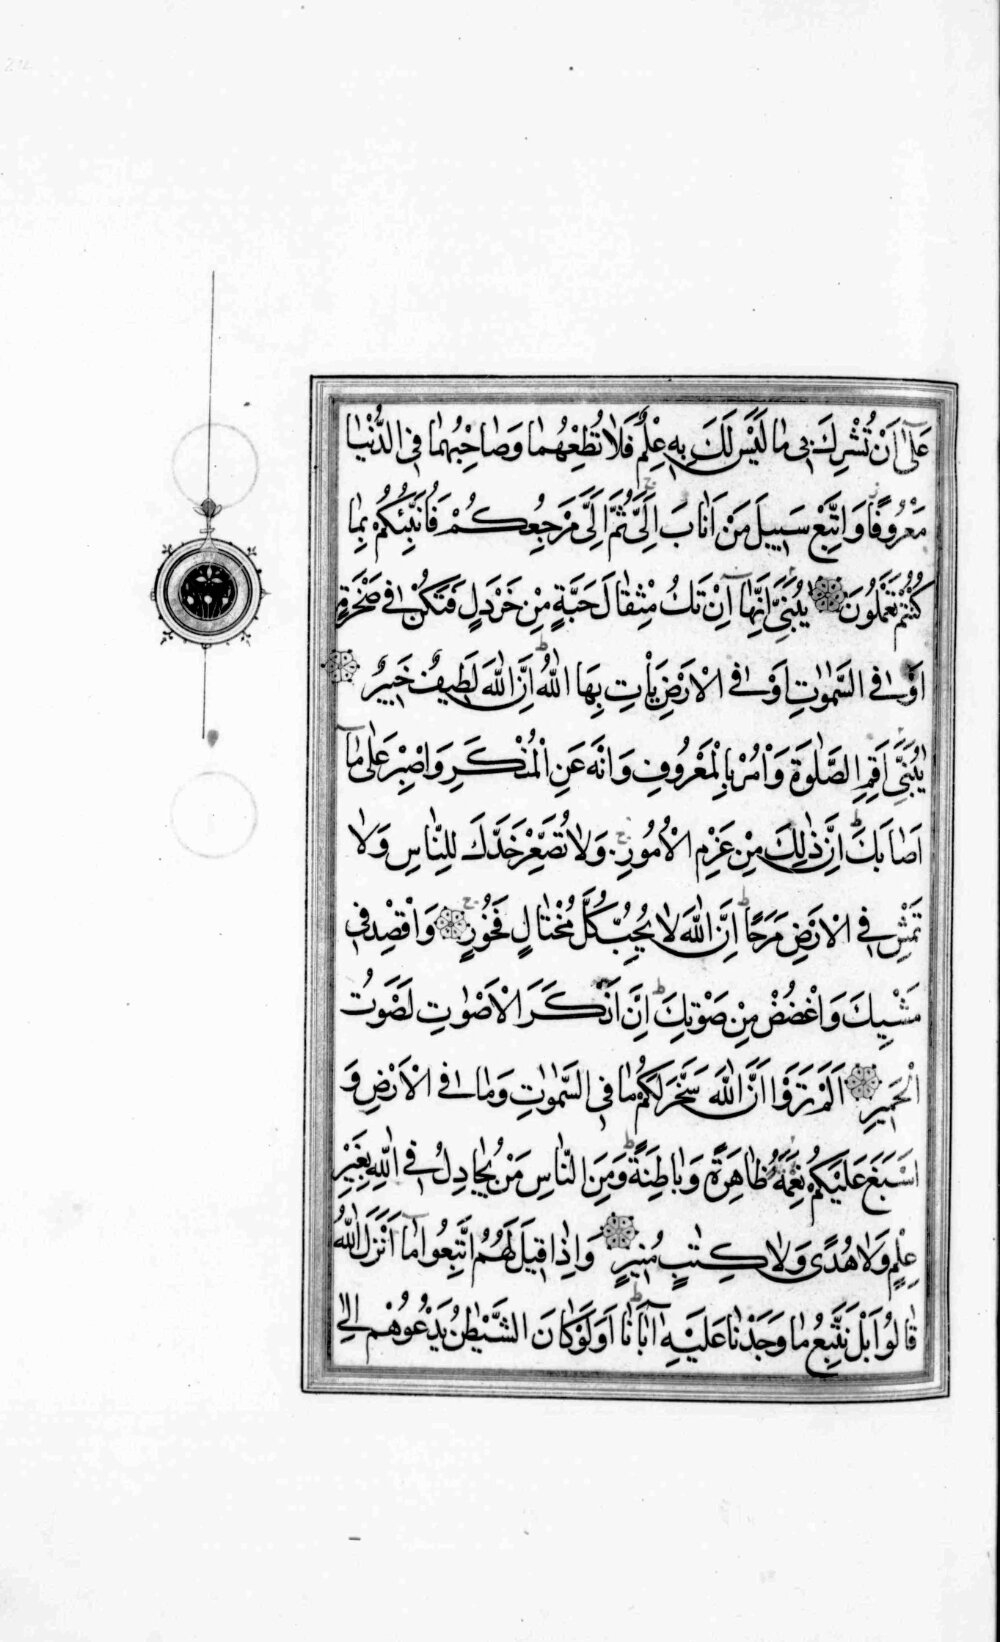 عَلٰٓى اَنْ تُشْرِكَ بِى مٰا لَيْسَ لَكَ بِهٖ عِلْمٌ فَلٰا تُطِعْهُمٰا وَصٰاحِبْهُمٰا فِى الدُّنْيٰا
مَعْرُوفًا وَاتَّبِعْ سَبِيلَ مَنْ اَنٰابَ اِلَىَّ ثُمَّ اِلَىَّ مَرْجِعُكُمْ فَاُنَبِّئُكُمْ بِمٰا
كُنْتُمْ تَعْمَلُونَ يٰبُنَىَّ اِنَّهٰٓا اِنْ تَكُ مِثْقٰالَ حَبَّةٍ مِنْ خَرْدَلٍ فَتَكُنْ فِى صَخْرَةٍ
اَوْ فِى السَّمٰوٰتِ اَوْ فِى الْاَرْضِ يَأْتِ بِهَا اللّٰهُ اِنَّ اللّٰهَ لَطِيفٌ خَبِيرٌ
يٰبُنَىَّ اَقِمِ الصَّلٰوةَ وَأْمُرْ بِالْمَعْرُوفِ وَانْهَ عَنِ الْمُنْكَرِ وَاصْبِرْ عَلٰى مٰٓا
اَصٰابَكَ اِنَّ ذٰلِكَ مِنْ عَزْمِ الْاُمُورِ وَلٰا تُصَعِّرْ خَدَّكَ لِلنّٰاسِ وَلٰا
تَمْشِ فِى الْاَرْضِ مَرَحًا اِنَّ اللّٰهَ لٰا يُحِبُّ كُلَّ مُخْتٰالٍ فَخُورٍ وَاقْصِدْ فِى
مَشْيِكَ وَاغْضُضْ مِنْ صَوْتِكَ اِنَّ اَنْكَرَ الْاَصْوٰاتِ لَصَوْتُ
الْحَمِيرِ اَلَمْ تَرَوْا اَنَّ اللّٰهَ سَخَّرَ لَكُمْ مٰا فِى السَّمٰوٰاتِ وَمٰا فِى الْاَرْضِ وَ
اَسْبَغَ عَلَيْكُمْ نِعَمَهُ ظٰاهِرَةً وَبٰاطِنَةً وَمِنَ النّٰاسِ مَنْ يُجٰادِلُ فِى اللّٰهِ بِغَيْرِ
عِلْمٍ وَلٰا هُدًى وَلٰا كِتٰبٍ مُنِيرٍ وَاِذٰا قِيلَ لَهُمُ اتَّبِعُوا مٰٓا اَنْزَلَ اللّٰهُ
قٰالُوا بَلْ نَتَّبِعُ مٰا وَجَدْنٰا عَلَيْهِ اٰبٰآءَنٰا اَوَلَوْ كٰانَ الشَّيْطٰنُ يَدْعُوهُمْ اِلٰى